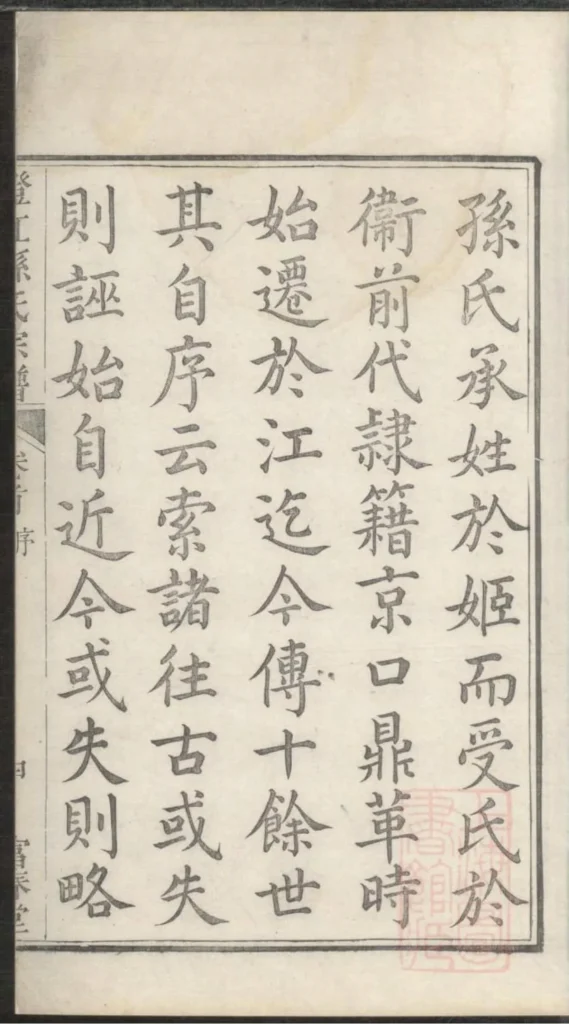 孫氏承姓於姬而受氏於
衞前代隷籍京口鼎革時
始遷於江迄今傳十餘世
其自序云索諸往古或失
則誣始自近今或失則略
澄江孫氏宗譜
卷首
序
四
富春堂